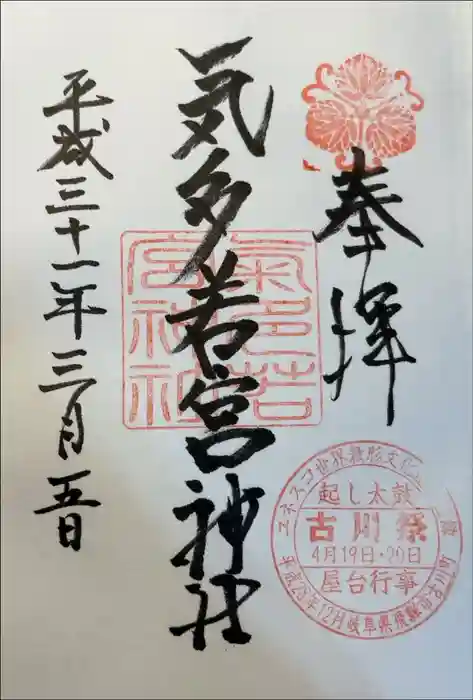 奉拝
気多若宮神社
平成三十一年三月五日
氣多若
宮神社
ユネスコ世界無形文化遺産
起し太鼓
古川祭
4月19日・20日
屋台行事
平成28年12月岐阜県飛騨市古川町